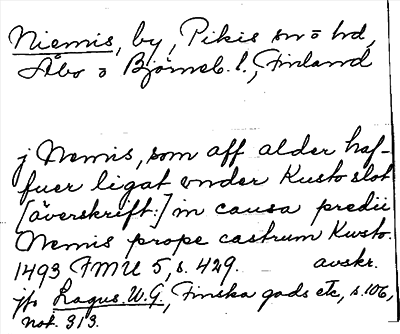 Niemis, by, Pikis sn o hd,
Åbo o Björneb. l., Finland
j Nemis, som aff alder haf-
fuer ligat vnder Kusto slot
[överskrift:] in causa predii
Nemis prope castrum Kusto.
1493 FMU 5, s. 429. avskr.
jfr Lagus W.G., Finska gods etc, s. 106,
not. 313.